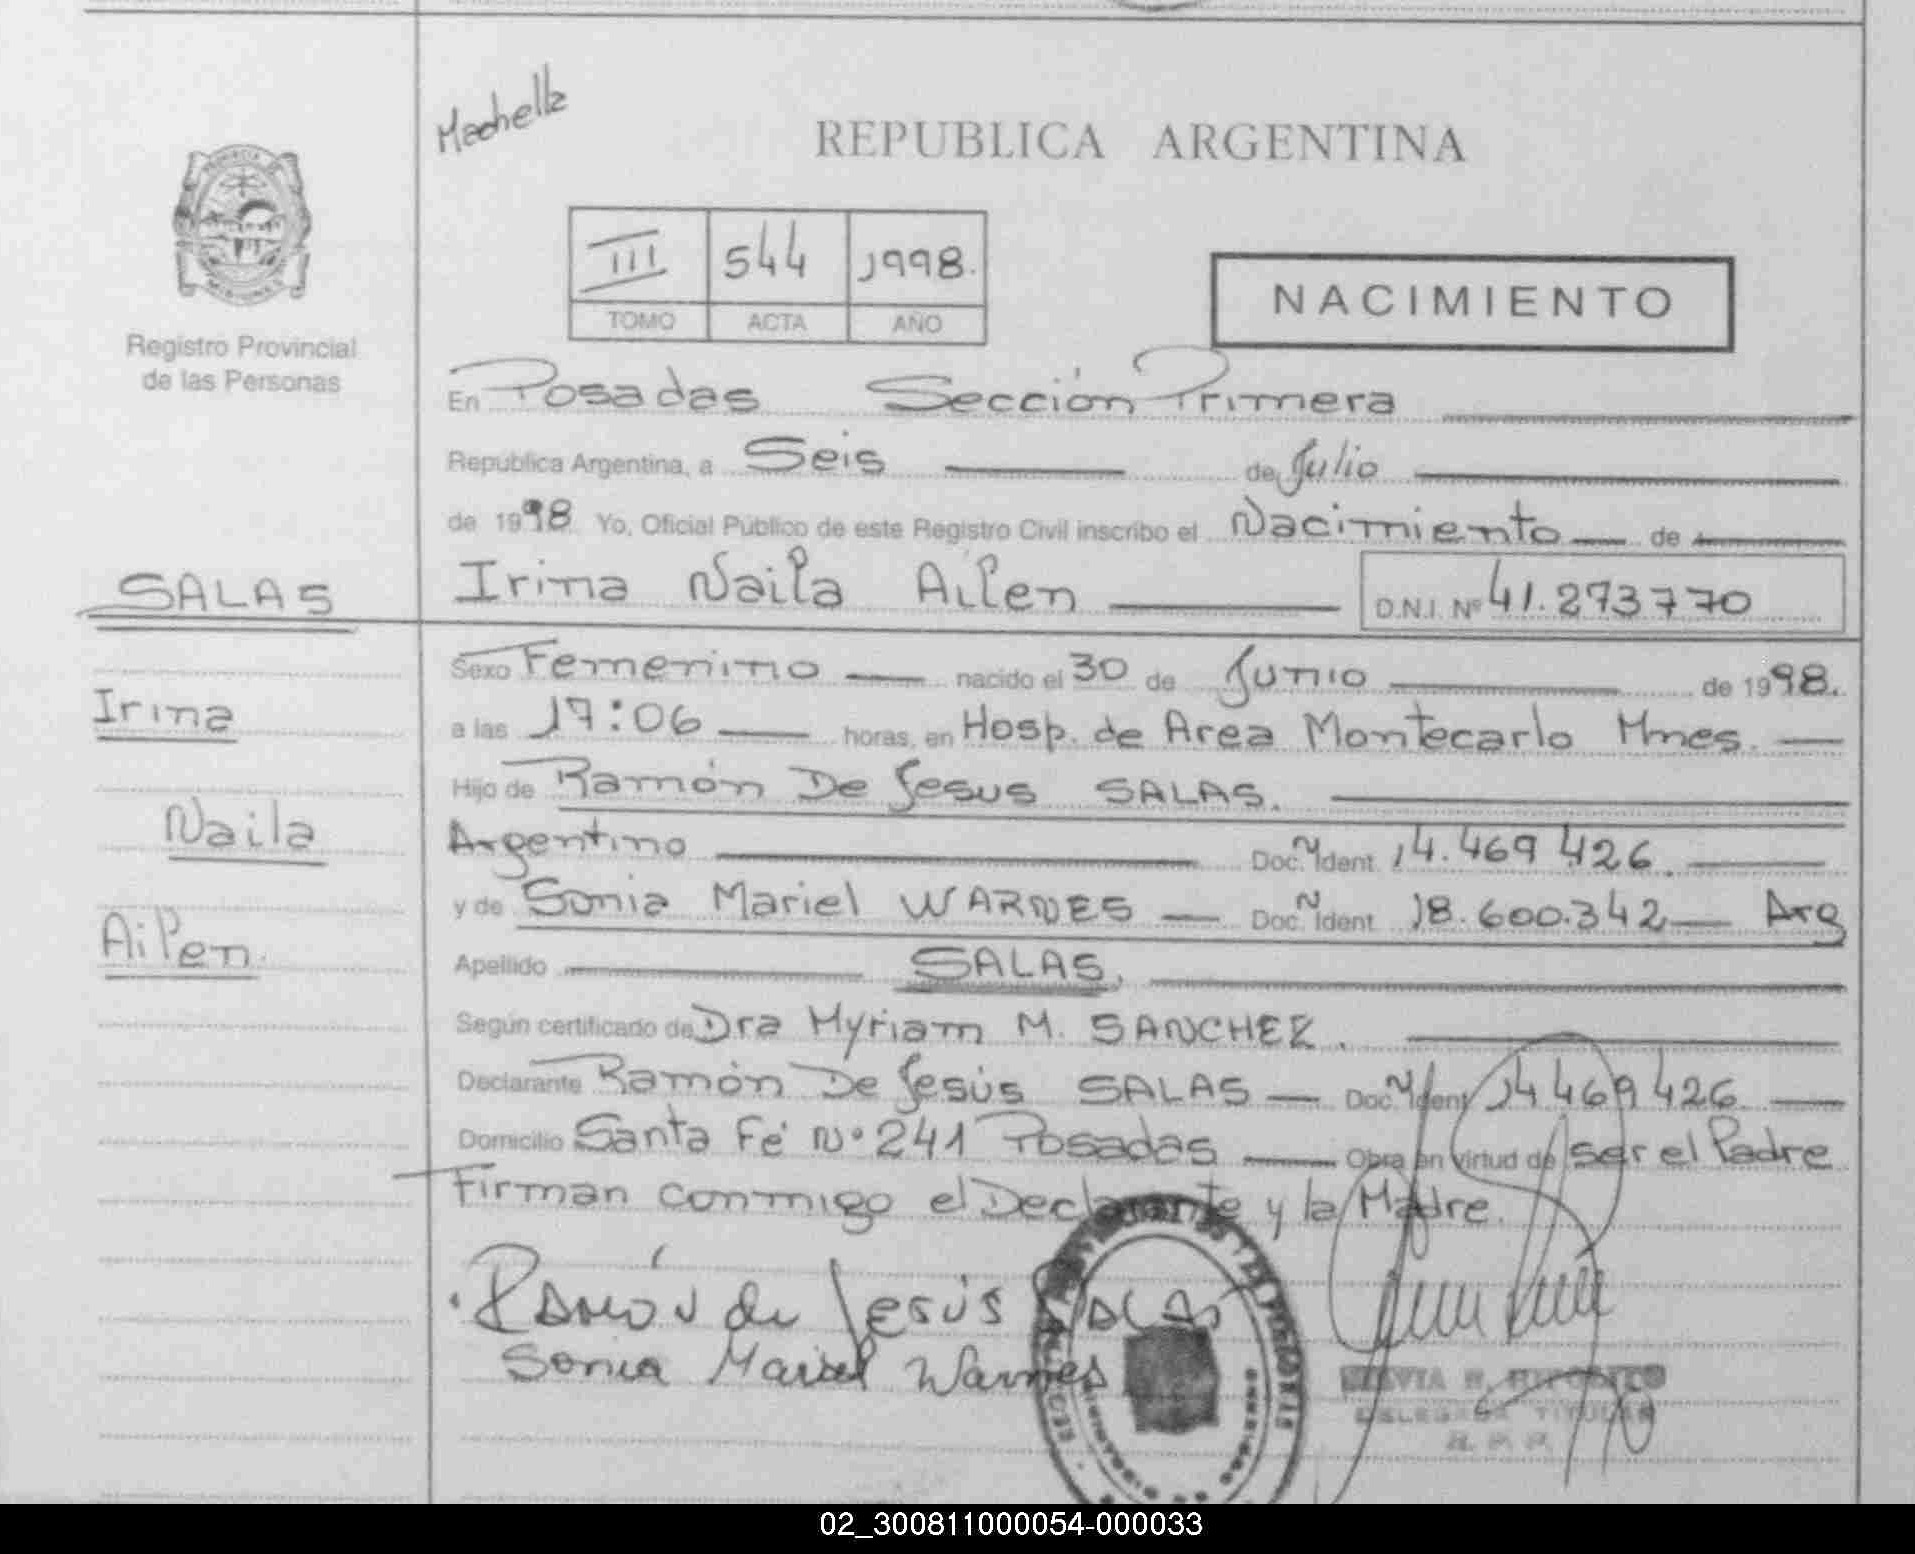 Machella
REPUBLICA ARGENTINA
III 544 1998.
TOMO ACTA AÑO
NACIMIENTO
Registro Provincial
de las Personas
En Posadas Sección Primera
República Argentina, a Seis de Julio
de 1998. Yo, Oficial Público de este Registro Civil inscribo el Nacimiento de
SALAS
Irina Naila Ailen D.N.I. Nº 41.273770
Sexo Femenino nacido el 30 de Junio de 1998.
Irina
a las 17:06 horas, en Hosp. de Area Montecarlo Mnes.
Hijo de Ramón De Jesus SALAS.
Naila
Argentino Doc. Ident. 14.469 426.
y de Sonia Mariel WARNES Doc. Ident. 18.600.342 Arg
Ailen.
Apellido SALAS.
Según certificado de Dra Myriam M. SANCHEZ.
Declarante Ramón De Jesús SALAS Doc. Ident 14 469 426
Domicilio Santa Fé Nº 241 Posadas Obra en virtud de ser el Padre
Firman conmigo el Declarante y la Madre.
Ramón de Jesús Salas
Sonia Mariel Warnes
DELEGADA TITULAR
R. P. P.
02_300811000054-000033